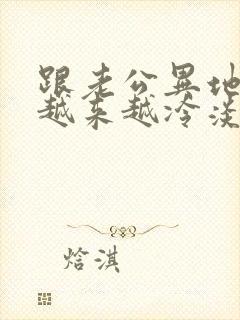 跟老公异地
越来越冷淡
焓淇